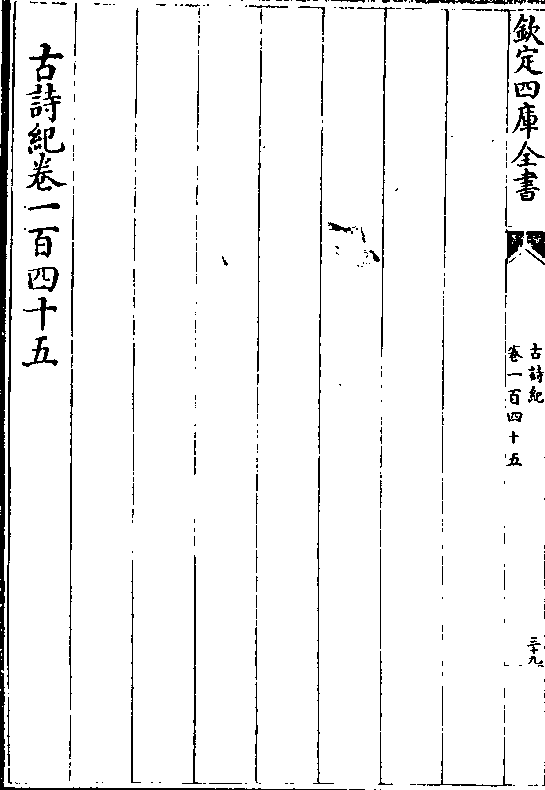 欽定四庫全書
古詩紀
卷一百四十五
三十九
古詩紀卷一百四十五